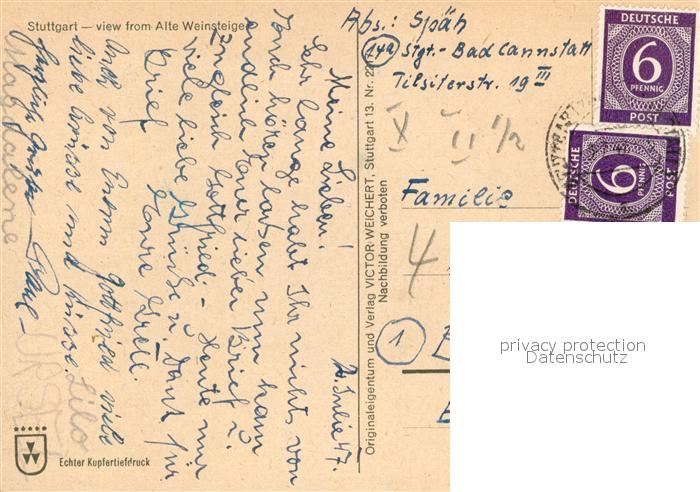 Stuttgart — view from Alte Weinsteige
Meine Lieben!
20. Julie 47.
Sehr lange habt Ihr nichts von
euch hören lassen nun kam
endlich Euer lieber Brief u.
zugleich Gottfried - Heute nur
viele liebe Grüsse u. Dank für
Brief Eure Gretl.
Auch von Eurem Gottfried viele
liebe Grüsse und Küsse.
Herzliche Grüsse
Lilo
Magdalene
Echter Kupfertiefdruck
Originaleigentum und Verlag VICTOR WEICHERT, Stuttgart 13. Nr.
Nachbildung verboten
Abs.: Späh
(14a) Stgt.- Bad Cannstatt
Tilsiterstr. 19 III
X II 1/2
Familie
4
1
DEUTSCHE
6
PFENNIG
POST
DEUTSCHE
6
PFENNIG
POST
privacy protection
Datenschutz